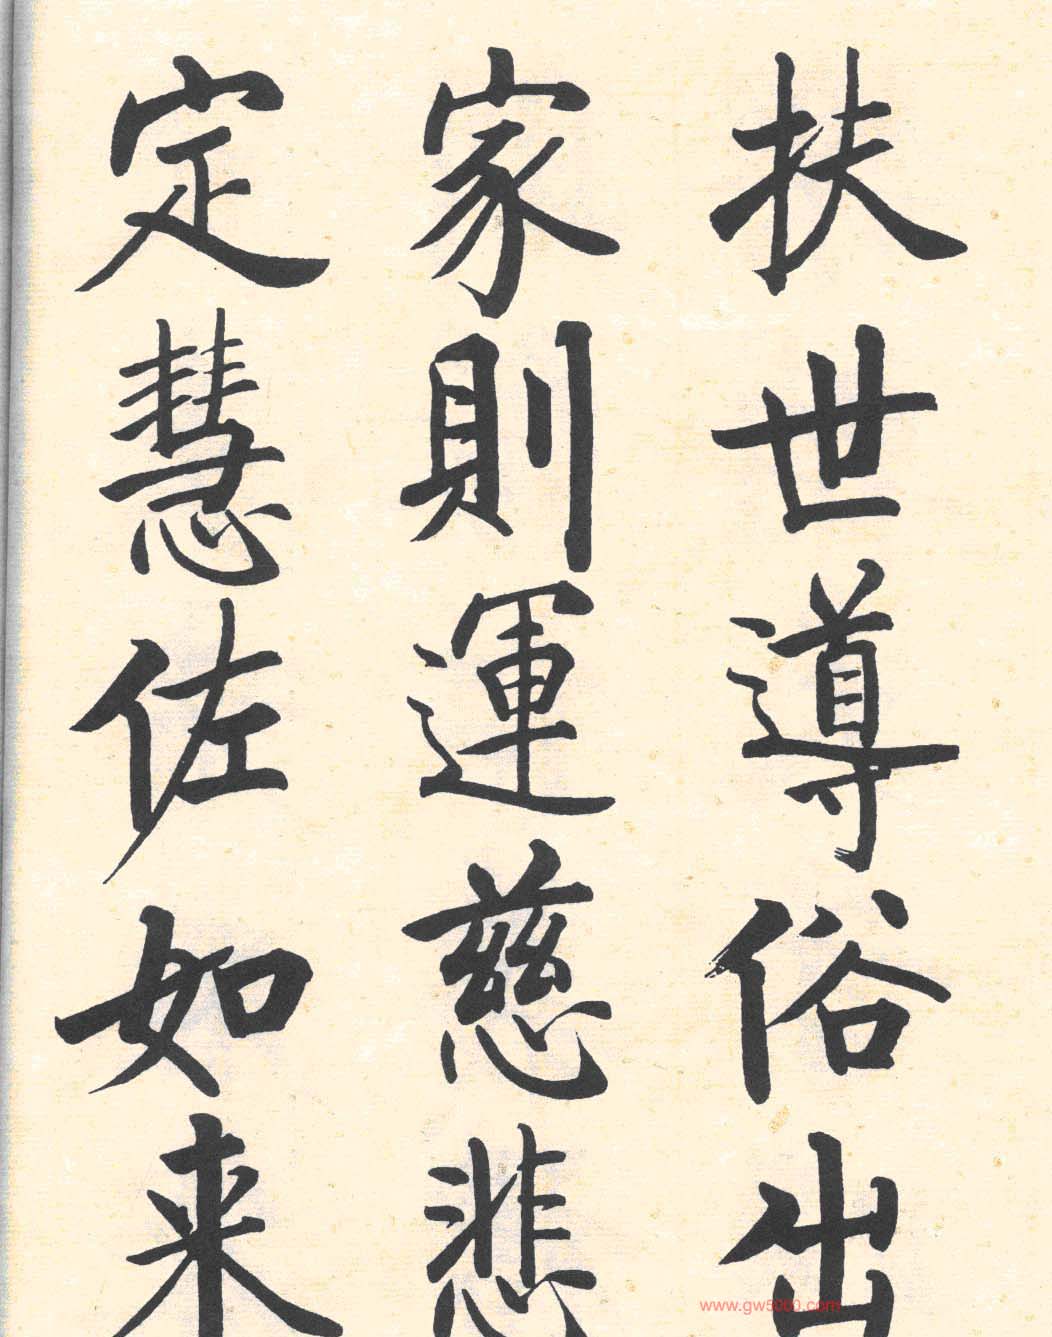 扶世導俗出
家則運慈悲
定慧佐如来
www.gw5000.com